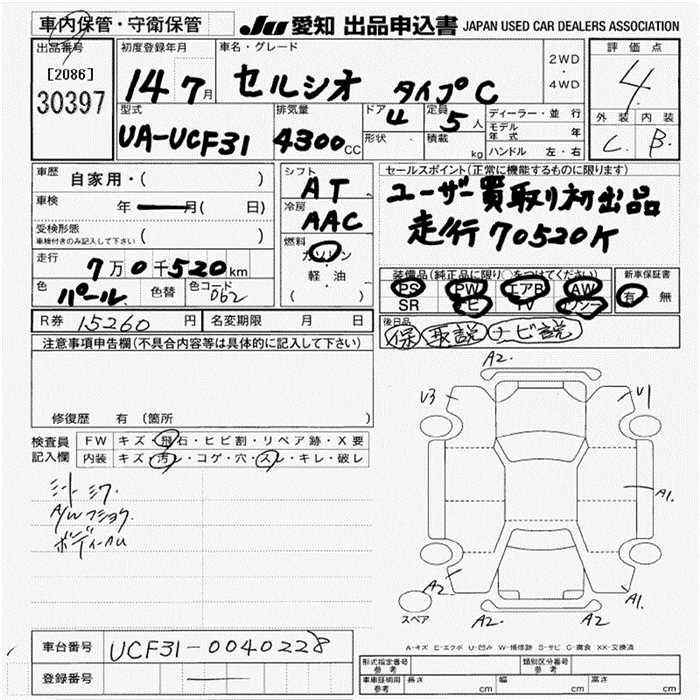 車内保管・守衛保管 JU 愛知 出品申込書 JAPAN USED CAR DEALERS ASSOCIATION
出品番号 初度登録年月 車名・グレード 評価点
[2086] 14 7月 セルシオ タイプC 2WD・4WD 4
30397
型式 排気量 ドア 定員 ディーラー・並行 外装 内装
UA-UCF31 4300CC 4 5人 モデル年式 年 C. B.
形状 積載 kg ハンドル 左・右
車歴 自家用・( ) シフト AT セールスポイント(正常に機能するものに限ります)
車検 年 月( 日) 冷房 AAC ユーザー買取り初出品
受検形態 車検付きのみ記入して下さい ( ) 走行70520K
走行 7万0千520km 燃料 ガソリン・軽・油 ( )
装備品(純正品に限り○をつけてください) 新車保証書
色 パール 色替 色コード 062 PS PW エアB AW 有・無
SR ナビ TV
R券 15260円 名変期限 月 日 後日品 保 取説 ナビ説
注意事項申告欄(不具合内容等は具体的に記入して下さい)
A2.
V3 U1
修復歴 有 (箇所
検査員 FW キズ・飛石・ヒビ割・リペア跡・X要
記入欄 内装 キズ・汚レ・コゲ・穴・スレ・キレ・破レ
シートシワ
A1.
A2 A1.
スペア A2. A2
A-キズ E-エクボ U-凹み W-補修跡 S-サビ C-腐食 XX-交換済
車台番号 UCF31-0040228
登録番号
形式指定番号 参考 類別区分番号 参考
車庫証明用 参考 長さ cm 幅 cm 高さ cm